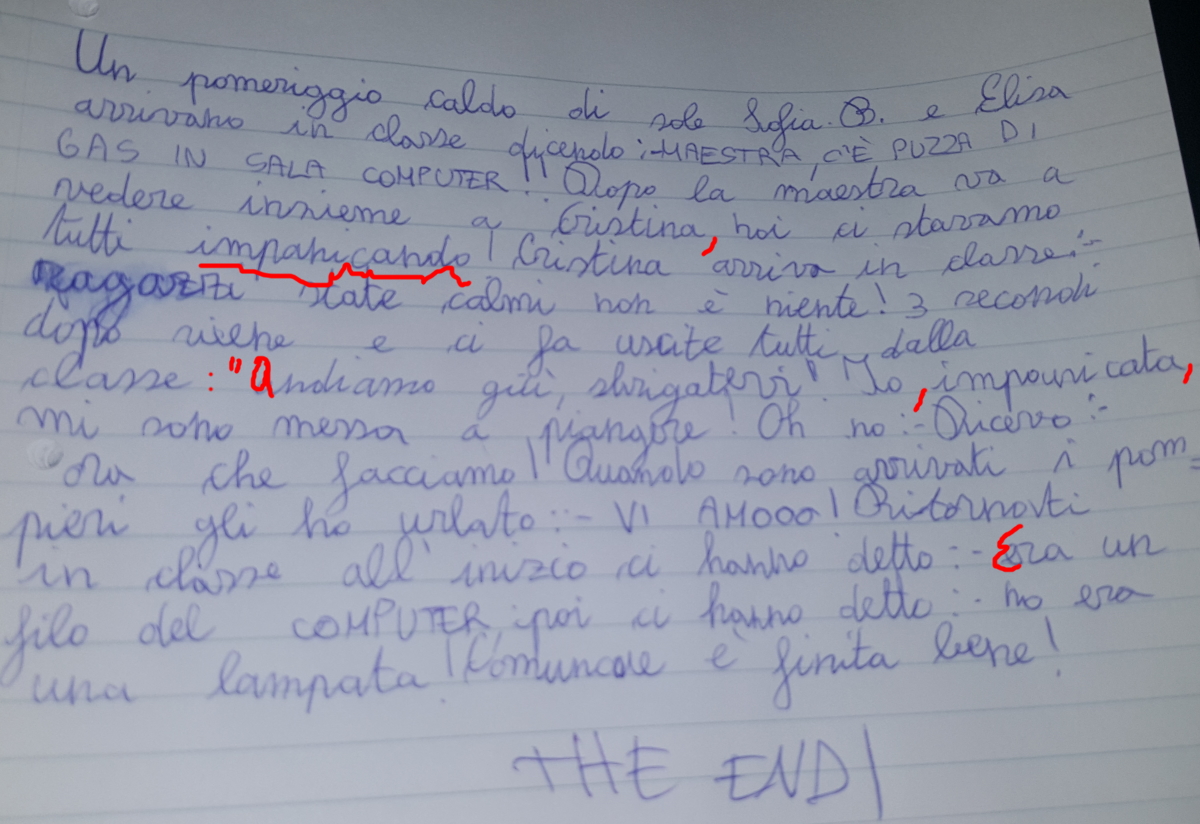 Un pomeriggio caldo di sole Sofia. B. e Elisa
arrivano in classe dicendo :-MAESTRA, C'È PUZZA DI
GAS IN SALA COMPUTER! Dopo la maestra va a
vedere insieme a Cristina, noi ci stavamo
tutti impanicando! Cristina arriva in classe:-
Ragazzi state calmi non è niente! 3 secondi
dopo viene e ci fa uscite tutti dalla
classe: "Andiamo giù, sbrigatevi! Io, impauricata,
mi sono messa a piangere! Oh no :- Dicevo :-
Ora che facciamo! Quando sono arrivati i pom=
pieri gli ho urlato :- VI AMOOO! Ritornati
in classe all'inizio ci hanno detto :- Era un
filo del COMPUTER, poi ci hanno detto :- no era
una lampata! Comuncue è finita bene!
THE END!